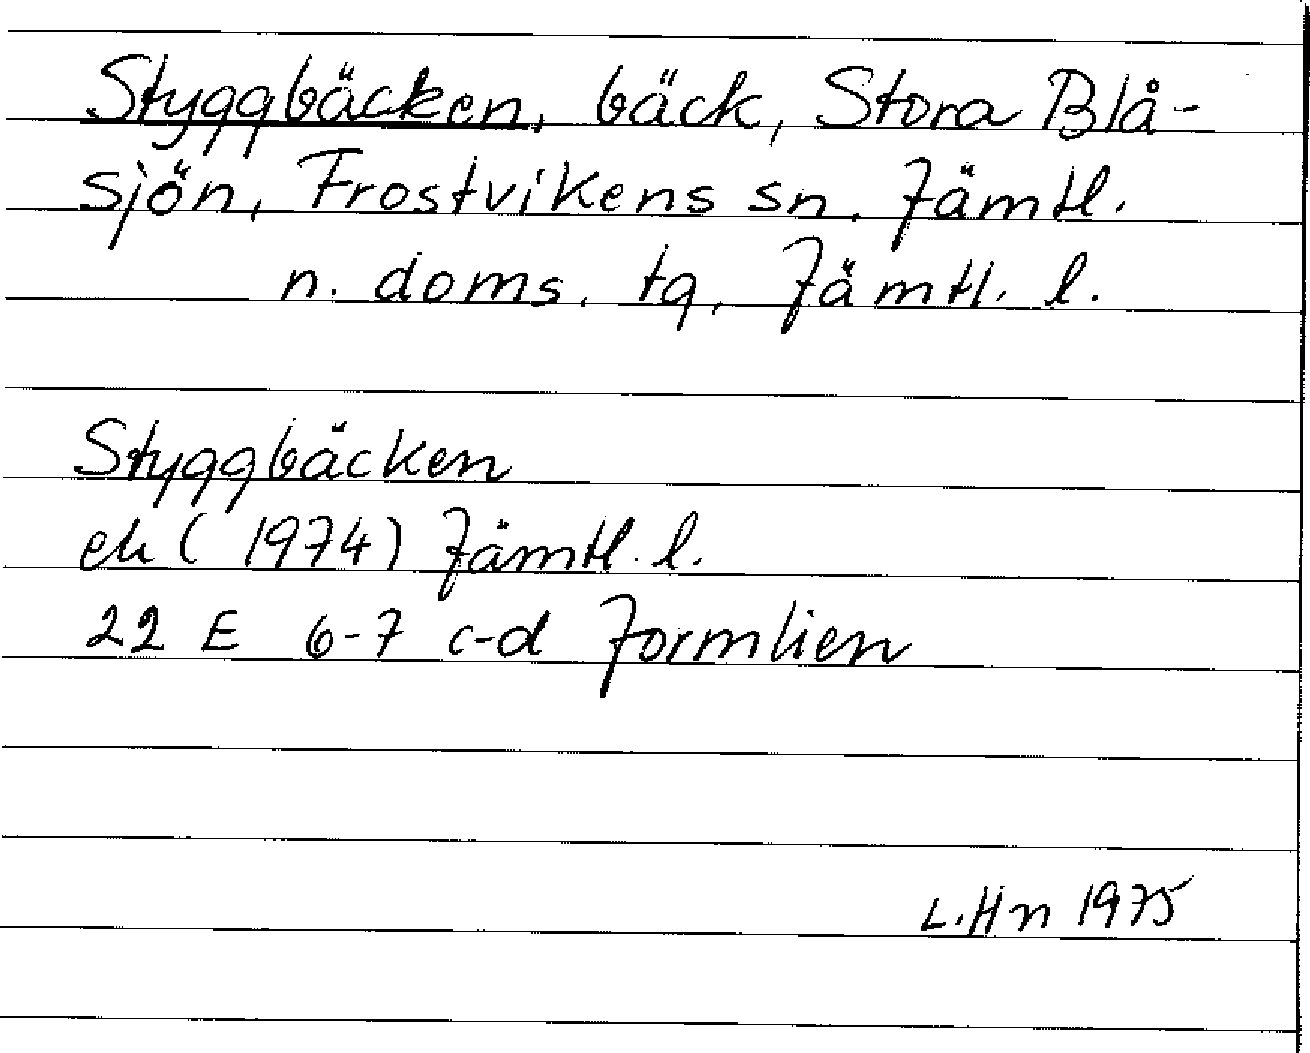 Styggbäcken, bäck, Stora Blå-
sjön, Frostvikens sn. Jämtl.
n. doms. tg, Jämtl. l.
Styggbäcken
ek (1974) Jämtl. l.
22 E 6-7 c-d Jormlien
L.Hn 1975